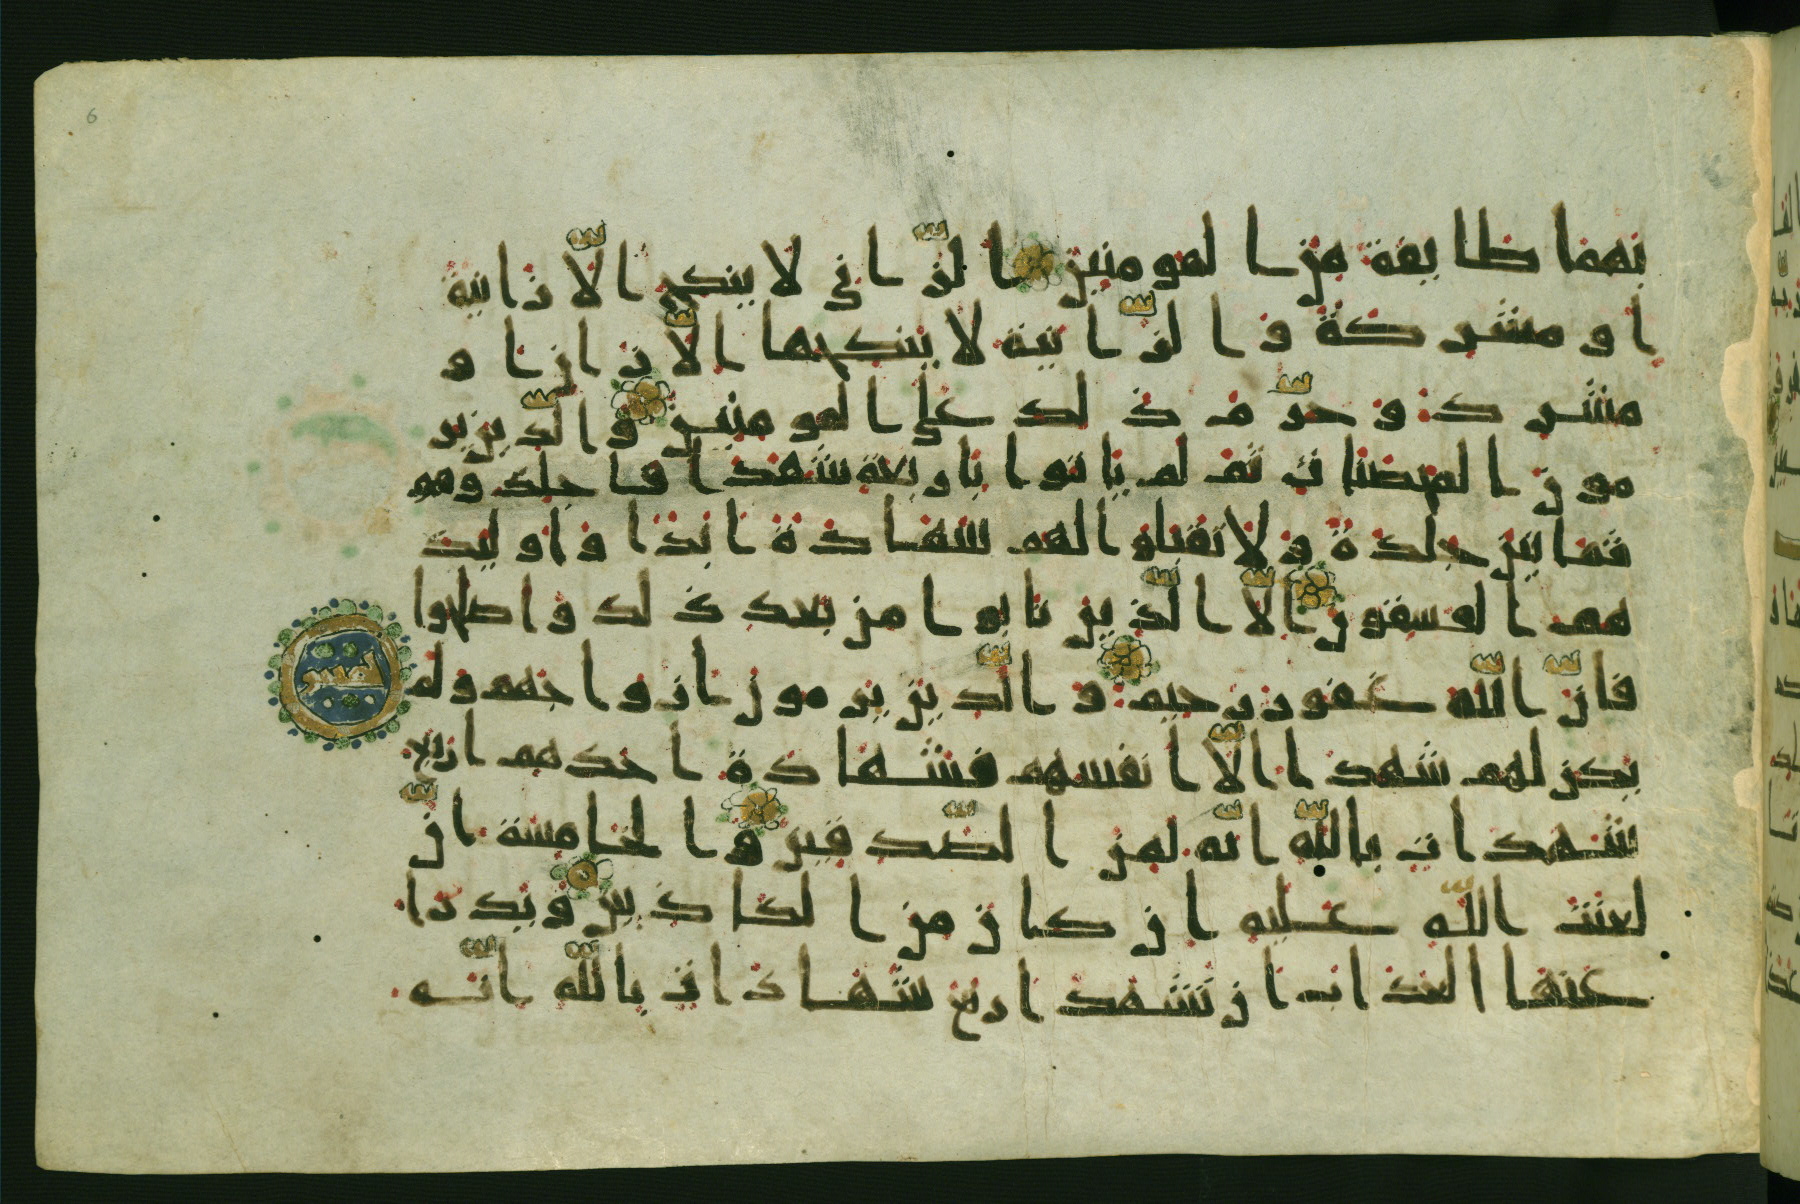 بهما طايفة من المومنين الزّانى لا ينكح الّا زانية
او مشركة و الزّانية لا ينكحها الّا زان ا و
مشرك و حرّم ذلك على المومنين و الّذين ير
مون المحصنات ثم لم ياتوا باربعة شهدا فاجلدوهم
ثمانين جلدة و لا تقبلوا لهم شهادة ابدا و اوليك
هم الفسقون الّا الّذين تابوا من بعد ذلك و اصلحوا
فانّ اللّه غفور رحيم و الّذين يرمون ازواجهم ولم
يكن لهم شهدا الّا انفسهم فشهادة احدهم اربع
شهدات باللّه انّه لمن الصّدقين و الخامسة انّ
لعنت اللّه عليه ان كان من الكاذبين ويدروا
عنها العذاب ان تشهد اربع شهادات باللّه انّه
6